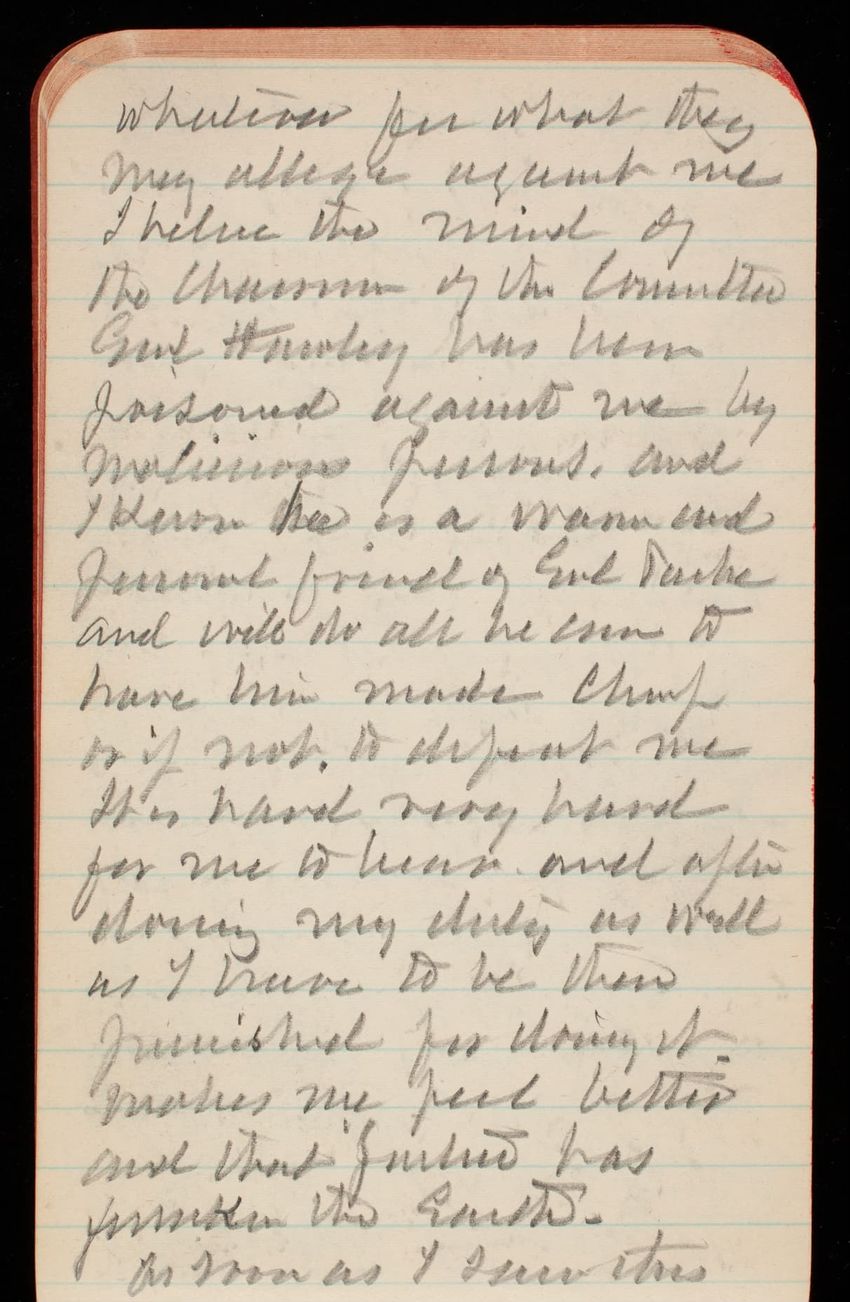 whatever for what they
may allege against me
I believe the mind of
the Chairman of the Committee
Genl Hawley has been
poisoned against me by
malicious persons, and
I Know he is a warm and
personal friend of Genl
and will do all he can to
have him made Chief
or if not, to defeat me
It is hard very hard
for me to bear. and after
doing my duty as well
as I have to be then
punished for doing it.
makes me feel bitter
and that Justice has
forsaken the Earth.
As soon as I saw this